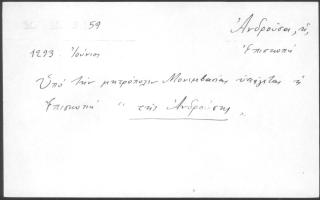 59
Ἀνδρούσα, ἡ,
Ἐπισκοπὴ
1293 Ἰούνιος
Ὑπὸ τὴν μητρόπολιν Μονεμβασίας ὑπάγεται ἡ
Ἐπισκοπὴ " τῆς Ἀνδρούσης "